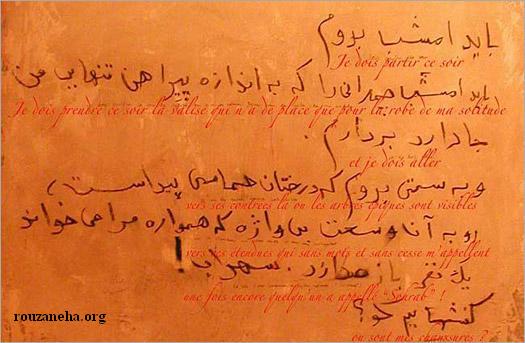 باید امشب بروم
Je dois partir ce soir
باید امشب چمدانی را که به اندازه پیراهن تنهایی من
Je dois prendre ce soir la valise qui n'a de place que pour la robe de ma solitude
جا دارد بردارم.
et je dois aller
و به سمتی بروم که درختان حماسی پیداست،
vers ses contrées là ou les arbres épiques sont visibles
رو به آن وسعت بی واژه که همواره مرا می خواند
vers ses étendues qui sans mots et sans cesse m'appellent
یک نفر باز صدا زد. سهراب!
une fois encore quelqu'un a appellé "Sohrab" !
کفشهایم کو؟
où sont mes chaussures ?
rouzaneha.org